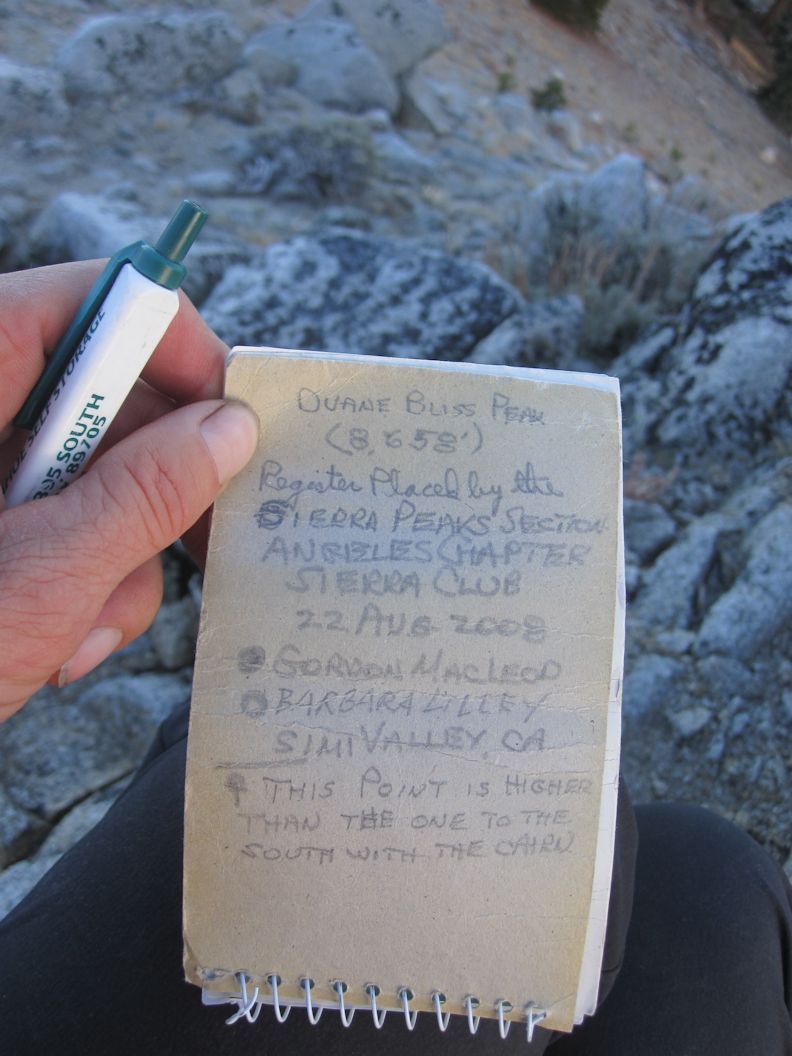 SELF STORAGE
305 SOUTH
89705
DUANE BLISS PEAK
(8,658')
Register Placed by the
SIERRA PEAKS SECTION
ANGELES CHAPTER
SIERRA CLUB
22 AUG 2008
GORDON MACLEOD
BARBARA LILLEY
SIMI VALLEY, CA
THIS POINT IS HIGHER
THAN THE ONE TO THE
SOUTH WITH THE CAIRN